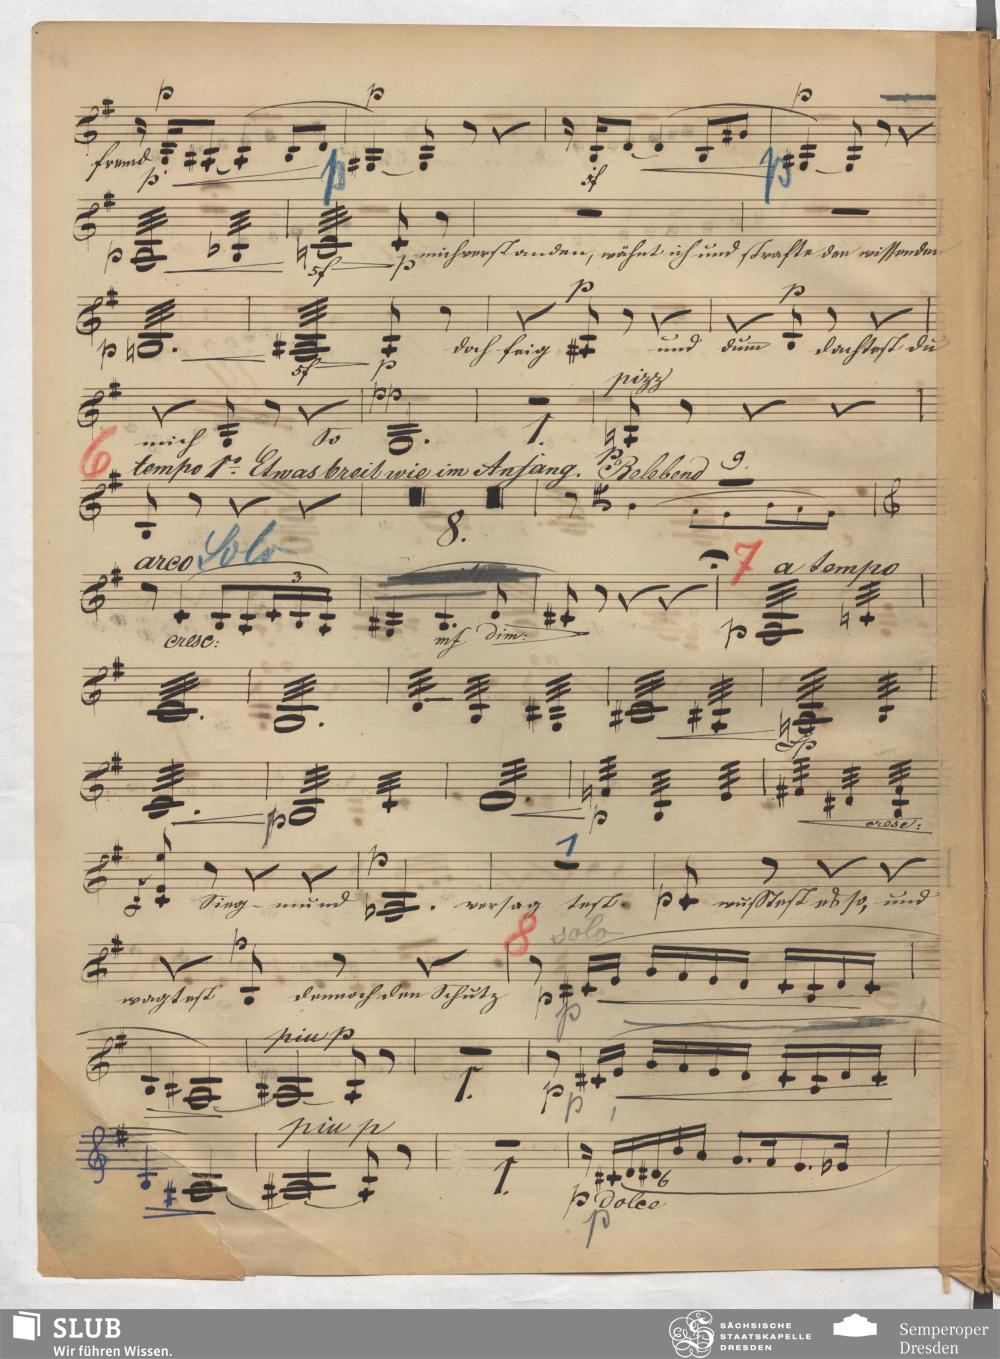 p p p
fremd p p sf p
p sf p mich verstanden, wähnt ich und strafte den wissenden
p p
p sf p doch feig und dum dachtest du
pizz
mich So pp 1. p
6 tempo 1º. Etwas breit wie im Anfang. Belebend 9.
8.
arco Solo 3 7 a tempo
cresc: mf dim: p
fp
p p cresc:
1
Sieg-mund p versag test. p wusstest es so, und
8 solo
p
wagtest dennoch den Schutz p
p
piu p
1. p
p
piu p
1. 6
p dolce
p
SLUB
Wir führen Wissen.
SÄCHSISCHE
STAATSKAPELLE
DRESDEN
Semperoper
Dresden